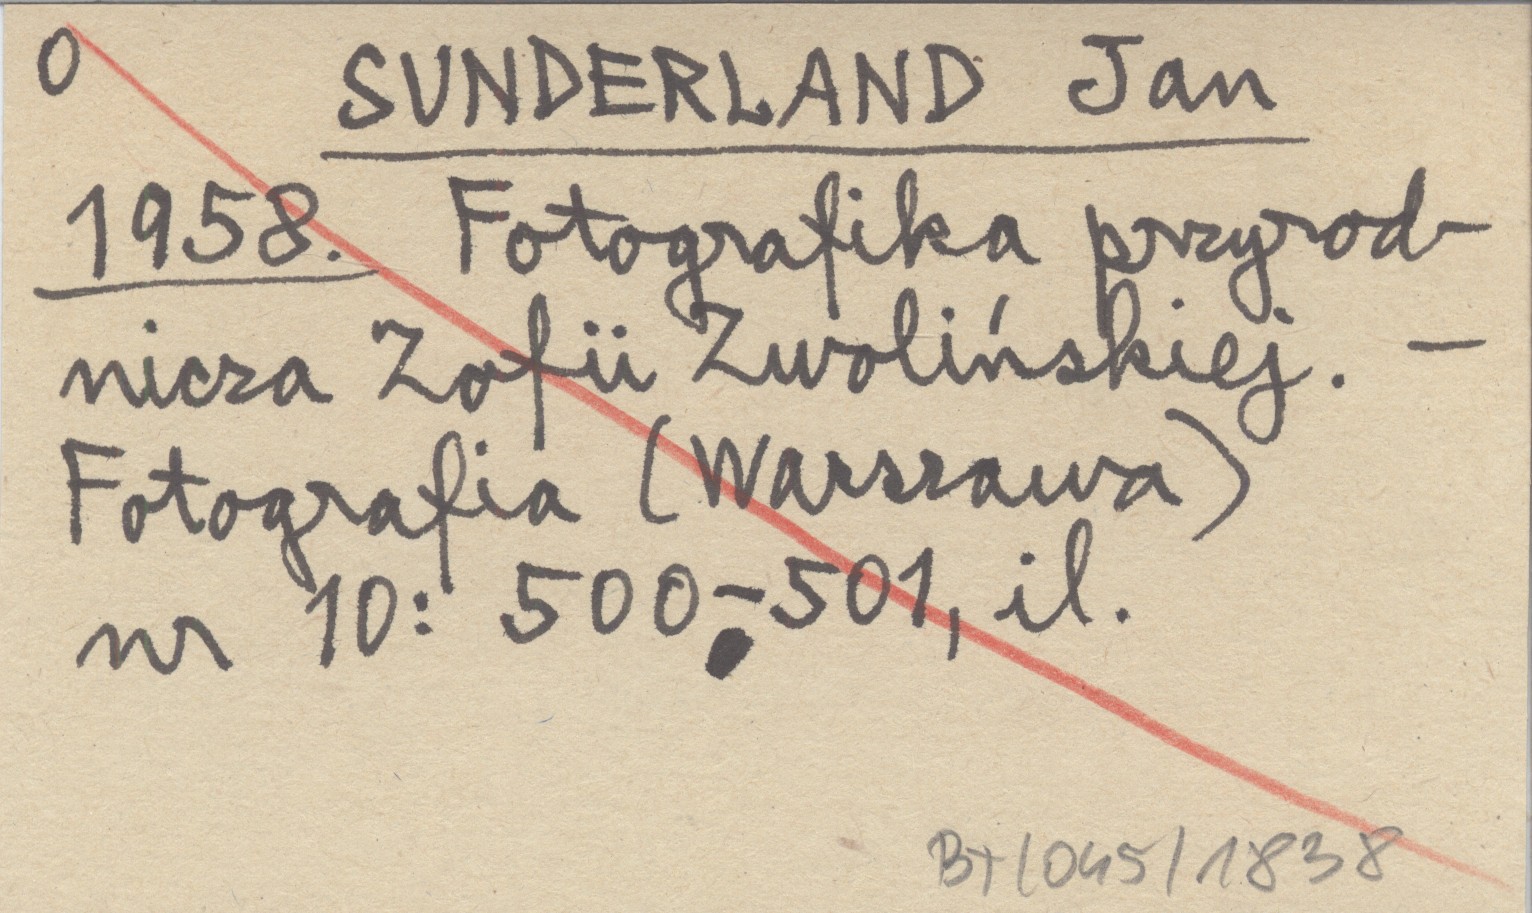 0
SUNDERLAND Jan
1958. Fotografika przyrod-
nicza Zofii Zwolińskiej. –
Fotografia (Warszawa)
nr 10: 500-501, il.
BT/045/1838